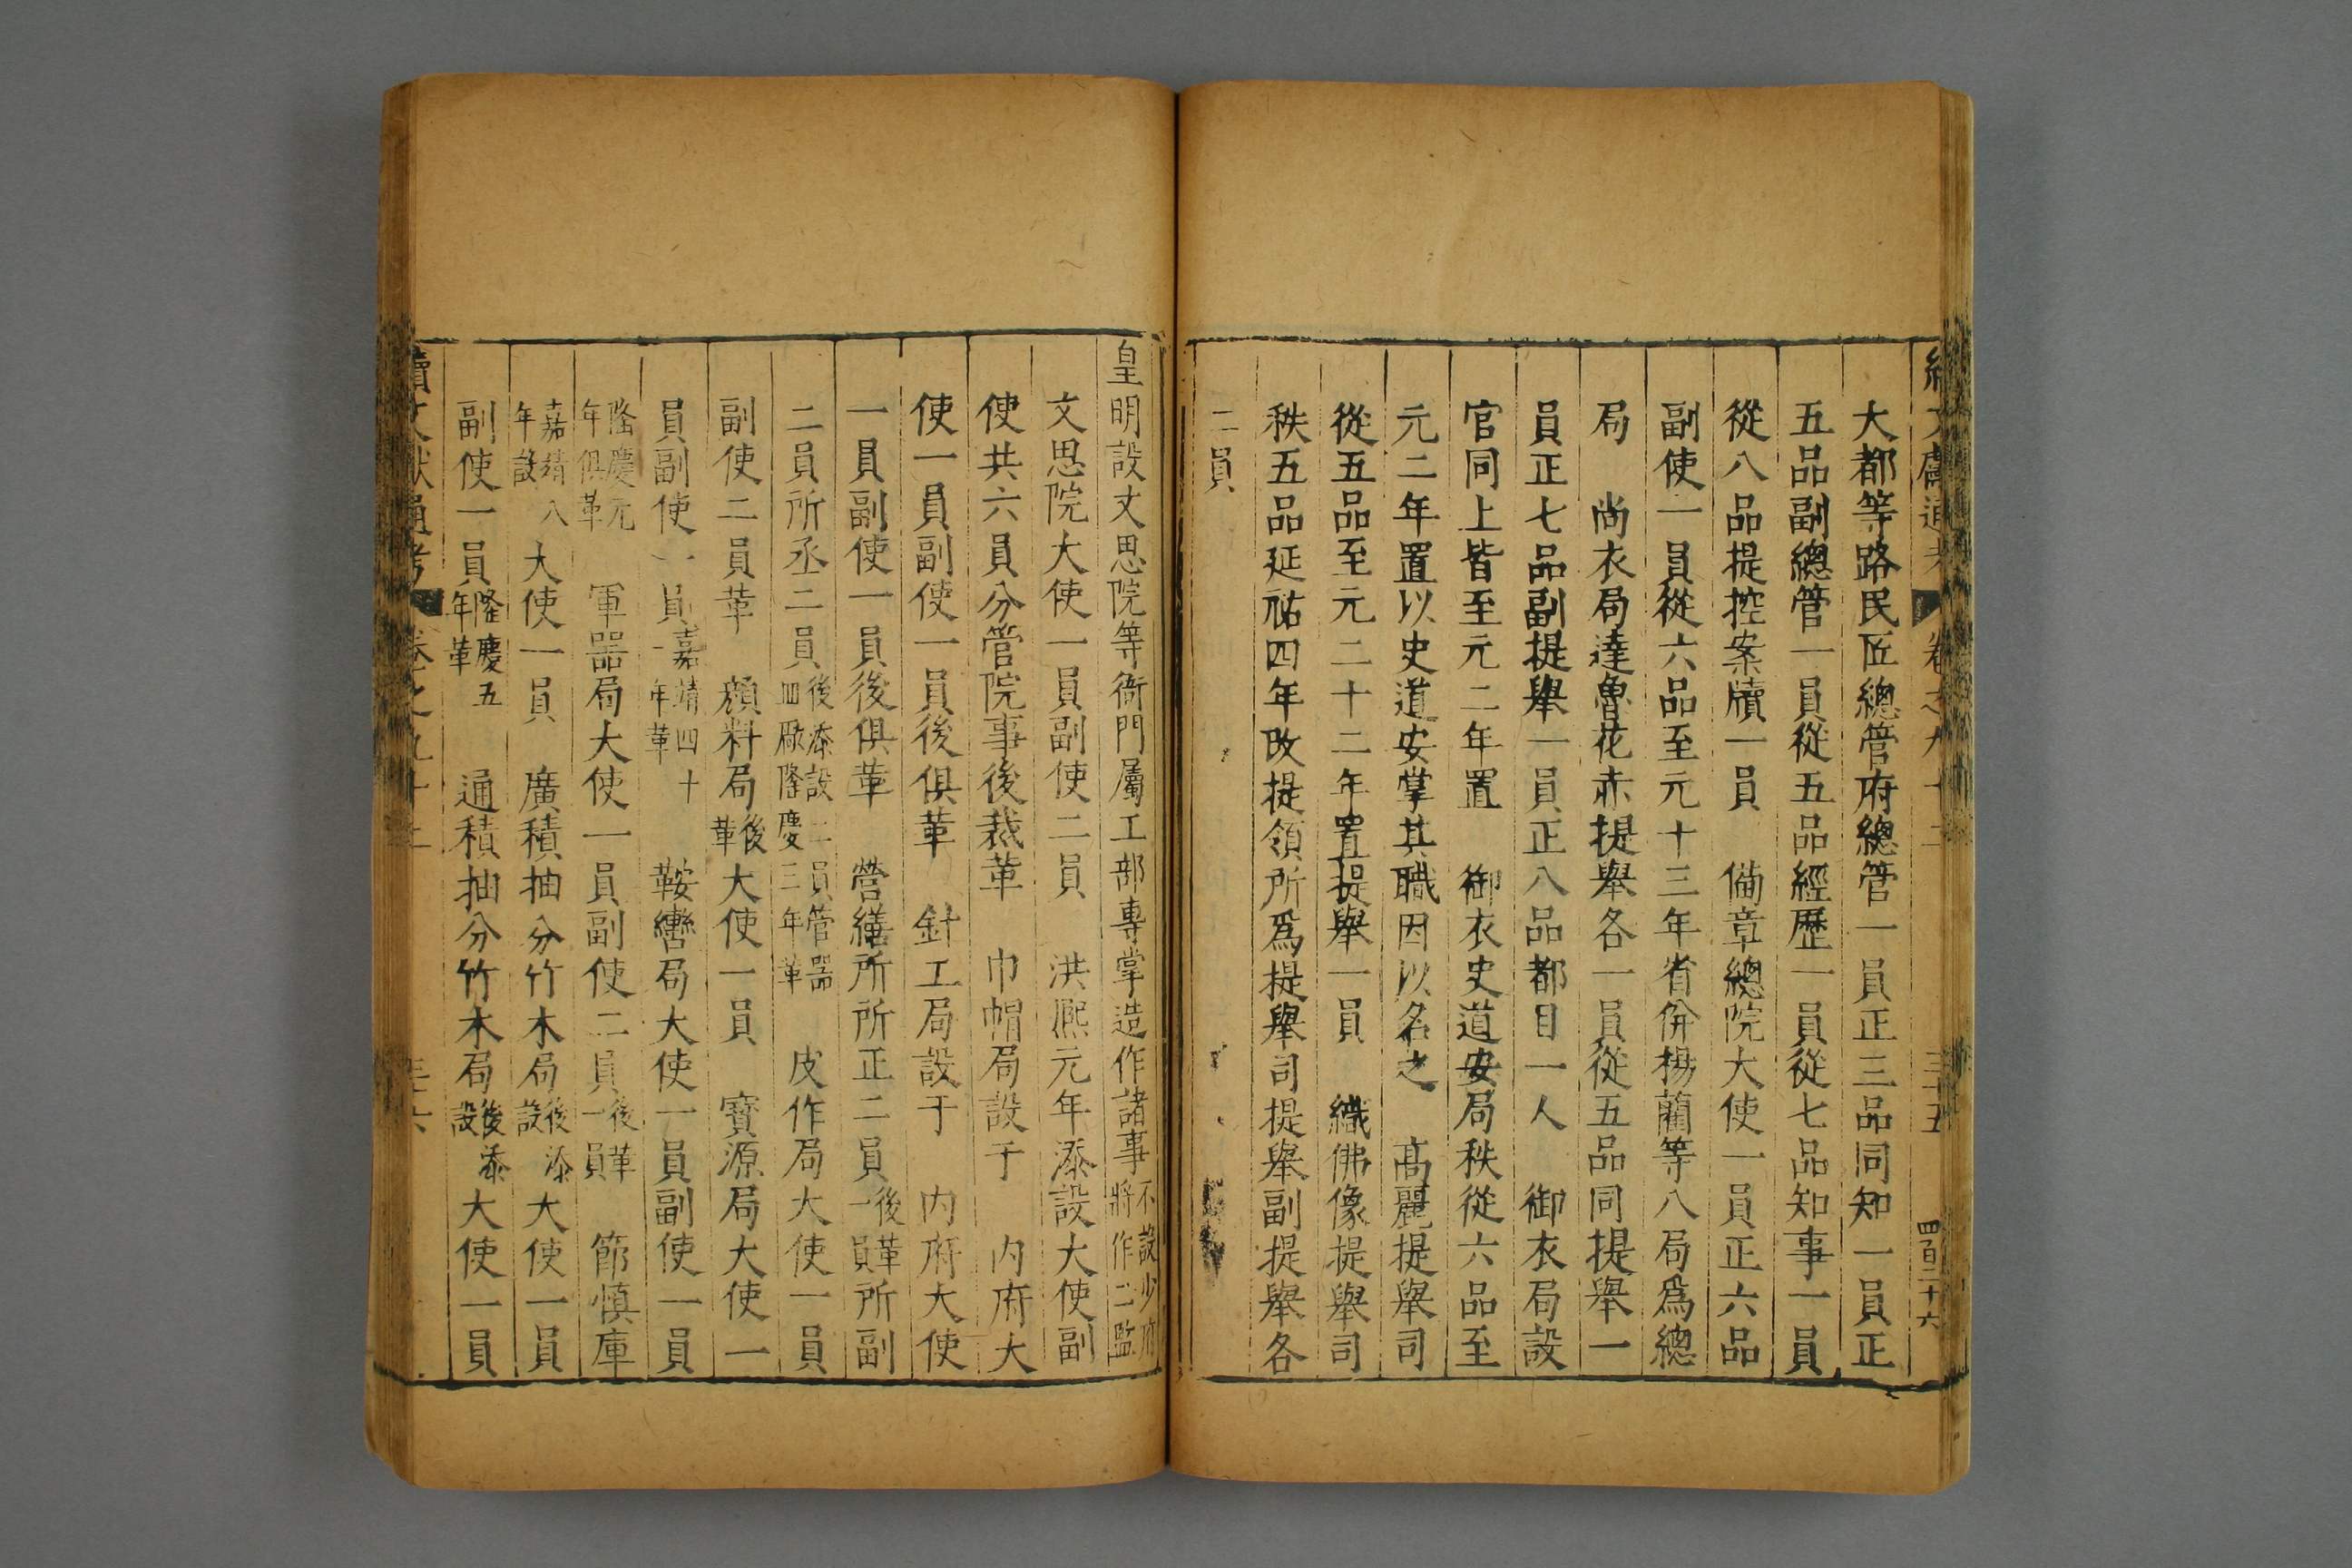 大都等路民匠總管府總管一員正三品同知一員正
五品副總管一員從五品經歷一員從七品知事一員
從八品提控案牘一員　備章總院大使一員正六品
副使一員從六品至元十三年省併楊藺等八局爲總
局　尚衣局達魯花赤提舉各一員從五品同提舉一
員正七品副提舉一員正八品都目一人　御衣局設
官同上皆至元二年置　御衣史道安局秩從六品至
元二年置以史道安掌其職因以名之　高麗提舉司
從五品至元二十二年置提舉一員　織佛像提舉司
秩五品延祐四年改提領所爲提舉司提舉副提舉各
二員
皇明設文思院等衙門屬工部專掌造作諸事不設少府將作二監
文思院大使一員副使二員　洪熈元年添設大使副
使共六員分管院事後裁革　巾帽局設于　内府大
使一員副使一員後俱革　針工局設于　内府大使
一員副使一員後俱革　營繕所所正二員後革一員所副
二員所丞二員後添設二員管器皿厰隆慶三年革　皮作局大使一員
副使二員革　顔料局後革大使一員　寳源局大使一
員副使一員嘉靖四十一年革　鞍轡局大使一員副使一員
隆慶元年俱革　軍器局大使一員副使二員後革一員　節慎庫
嘉靖八年設大使一員　廣積抽分竹木局後添設大使一員
副使一員隆慶五年革　通積抽分竹木局後添設大使一員
續文獻通考　卷之九十二　三十六